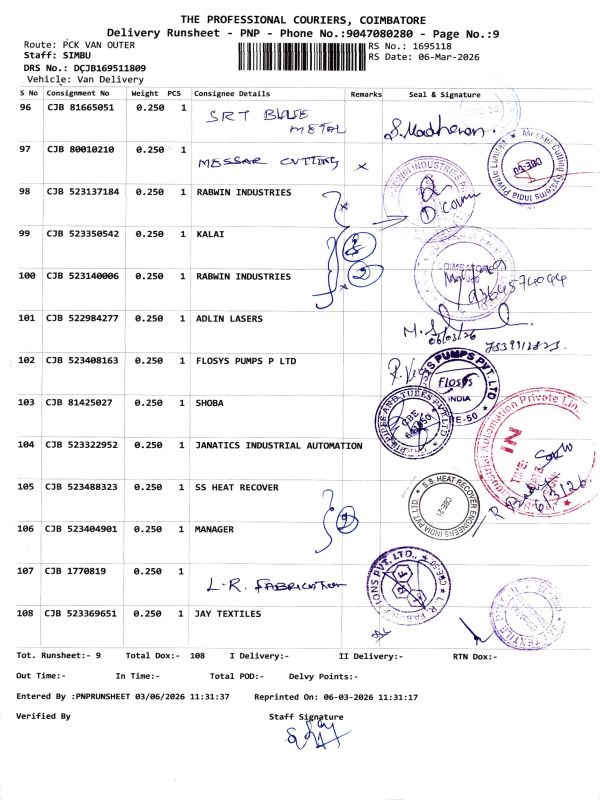 THE PROFESSIONAL COURIERS, COIMBATORE
Delivery Runsheet - PNP - Phone No.:9047080280 - Page No.:9
Route: PCK VAN OUTER RS No.: 1695118
Staff: SIMBU RS Date: 06-Mar-2026
DRS No.: DCJB169511809
Vehicle: Van Delivery
S No Consignment No Weight PCS Consignee Details Remarks Seal & Signature
96 CJB 81665051 0.250 1 SRT BLUE METAL S. Madhavan.
97 CJB 80010210 0.250 1 MESSAR CUTTING x
Messer Cutting Systems India Private Limited CBE-50
98 CJB 523137184 0.250 1 RABWIN INDUSTRIES
99 CJB 523350542 0.250 1 KALAI
100 CJB 523140006 0.250 1 RABWIN INDUSTRIES 2
101 CJB 522984277 0.250 1 ADLIN LASERS
06/03/26
102 CJB 523408163 0.250 1 FLOSYS PUMPS P LTD
FLOSYS PUMPS PVT. LTD Flosys INDIA CBE-50
103 CJB 81425027 0.250 1 SHOBA
PIPES AND TUBES PVT LTD CBE
104 CJB 523322952 0.250 1 JANATICS INDUSTRIAL AUTOMATION
Industrial Automation Private Lim IN TIME:
6/3/26
105 CJB 523488323 0.250 1 SS HEAT RECOVER
S.S. HEAT RECOVER ENGINEERS INDIA PVT LTD. CBE-21
106 CJB 523404901 0.250 1 MANAGER
107 CJB 1770819 0.250 1 L.R. FABRICATION
L.R. FABRICATIONS PVT. LTD., CBE-50
108 CJB 523369651 0.250 1 JAY TEXTILES
Tot. Runsheet:- 9 Total Dox:- 108 I Delivery:- II Delivery:- RTN Dox:-
Out Time:- In Time:- Total POD:- Delvy Points:-
Entered By :PNPRUNSHEET 03/06/2026 11:31:37 Reprinted On: 06-03-2026 11:31:17
Verified By Staff Signature